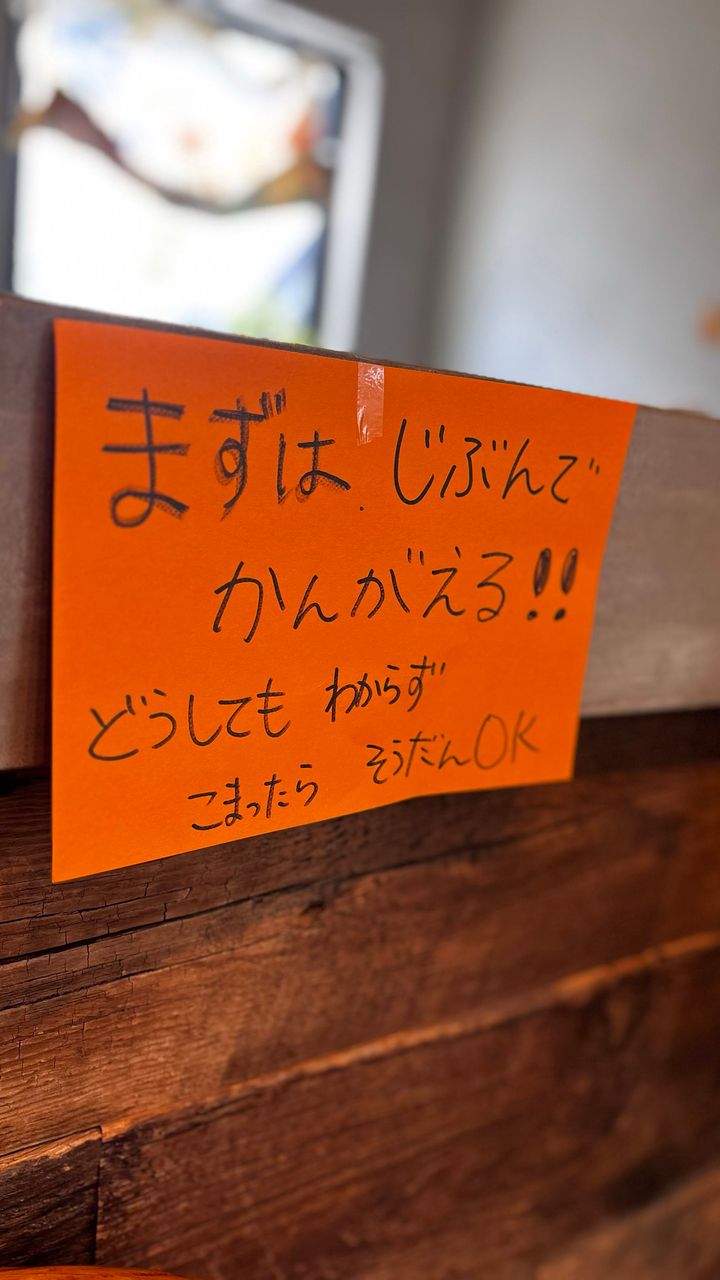 まずは じぶんで
かんがえる!!
どうしても わからず
こまったら そうだんOK